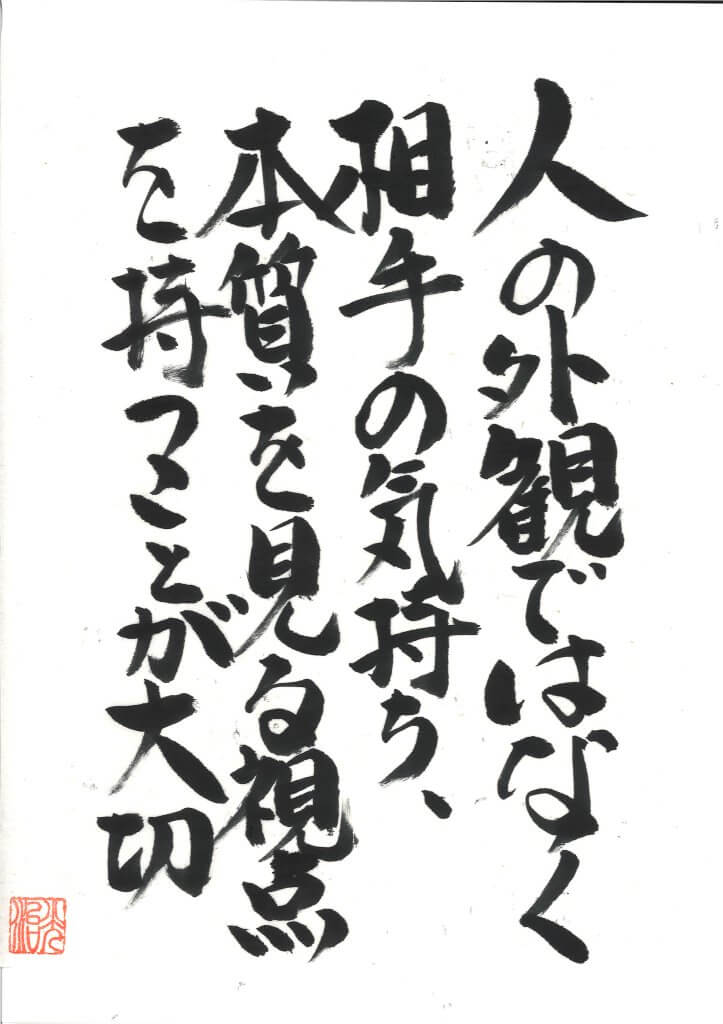 人の外観ではなく
相手の気持ち、
本質を見る視点
を持つことが大切